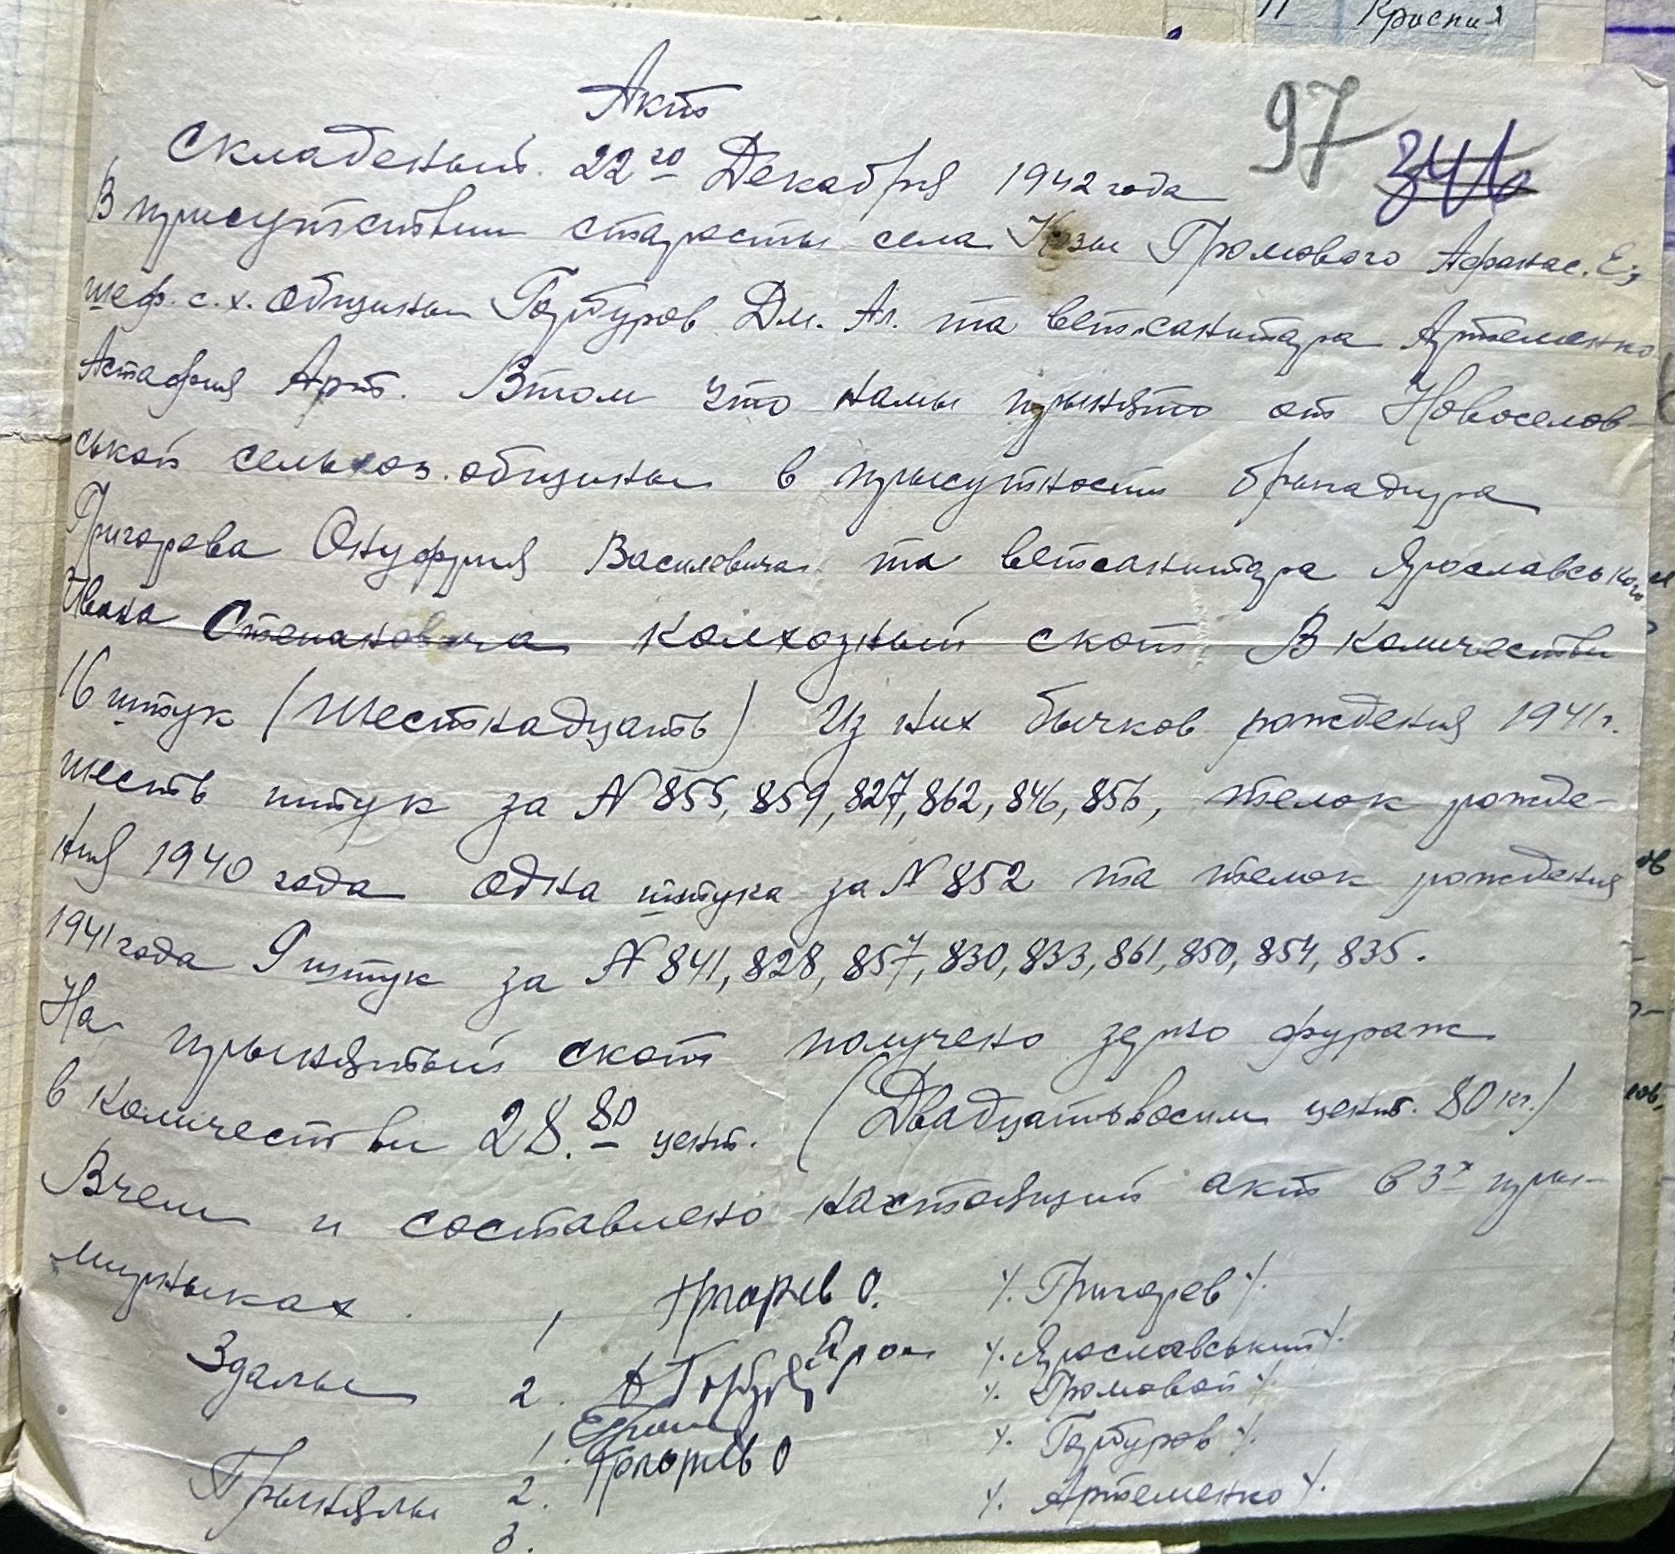 Красния
97
341
Актъ
Складеный 22го Декабря 1942 года
В присутствии старосты села Козы Громового Афанас. Е.,
шеф. с. х. общины Горбуров Дм. Ал. та ветсанитара Артеменко
Астафия Арт. Втом что намы прынято от Новоселов-
ськой сельхоз. общины в прысутности брыгадира
Григорева Онуфрия Василевича та ветсанитара Ярославського
Ивана Степановича колхозный скот В количестви
16 штук (Шестнадцать) Из них бычков рождения 1941 г.
шесть штук за N 855, 859, 827, 862, 846, 856, телок рожде-
ния 1940 года одна штука за N 852 та телок рождения
1941 года 9 штук за N 841, 828, 857, 830, 833, 861, 850, 854, 835.
На прынятый скот получено зерно фураж
в количестви 28.80 цент. (Двадцатьвосим цент. 80 кг.)
Вчем и составлено настоящий акт в 3х пры-
мирныках.
1 Григорев О. /. Григорев /.
Здалы 2. /. Ярославський /.
1 /. Громовой /.
Прынялы 2. /. Горбуров /.
3. /. Артеменко /.